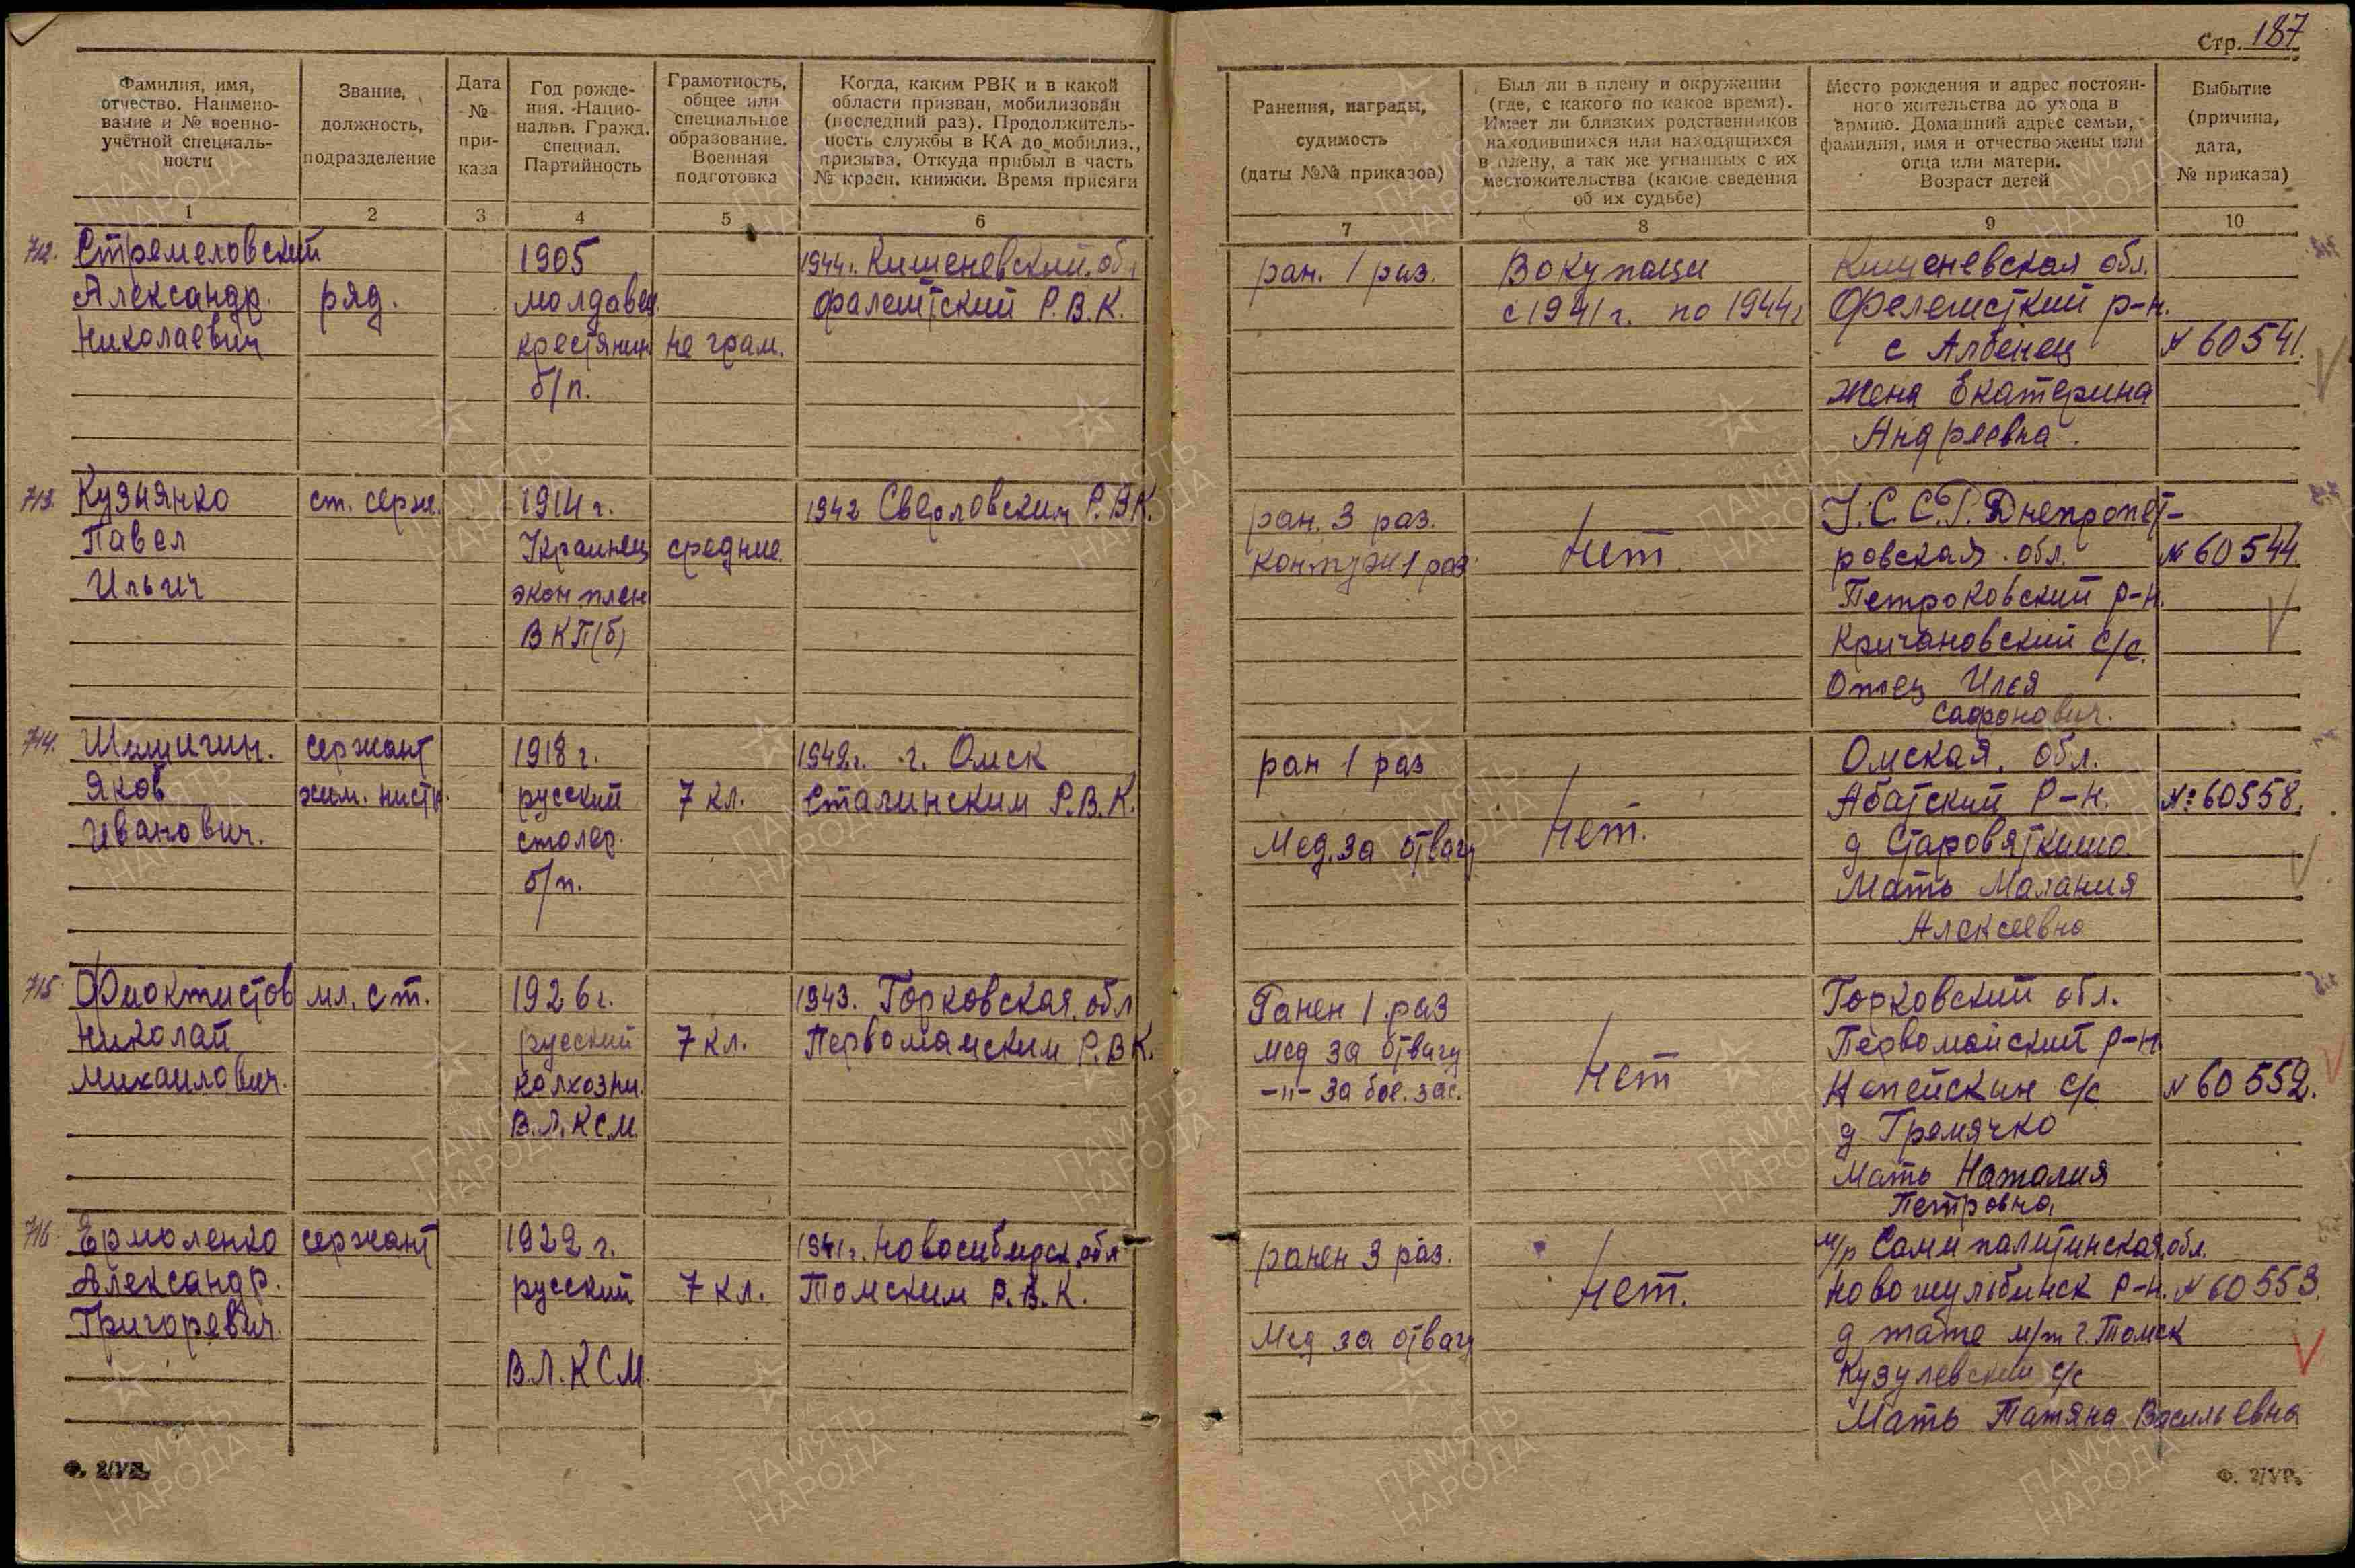 Стр. 187
Фамилия, имя,
отчество. Наимено-
вание и № военно-
учётной специаль-
ности
Звание,
должность,
подразделение
Дата
№
при-
каза
Год рожде-
ния. Нацио-
нальн. Гражд.
специал.
Партийность
Грамотность,
общее или
специальное
образование.
Военная
подготовка
Когда, каким РВК и в какой
области призван, мобилизован
(последний раз). Продолжитель-
ность службы в КА до мобилиз.,
призыва. Откуда прибыл в часть
№ красн. книжки. Время присяги
Ранения, награды,
судимость
(даты №№ приказов)
Был ли в плену и окружении
(где, с какого по какое время).
Имеет ли близких родственников
находившихся или находящихся
в плену, а так же угнанных с их
местожительства (какие сведения
об их судьбе)
Место рождения и адрес постоян-
ного жительства до ухода в
армию. Домашний адрес семьи,
фамилия, имя и отчество жены или
отца или матери.
Возраст детей
Выбытие
(причина,
дата,
№ приказа)
1 2 3 4 5 6 7 8 9 10
712. Стремеловский
Александр
Николаевич
ряд.
1905
молдаван
крестянин
б/п.
не грам.
1944г. Кишеневский обл
Фалештский Р.В.К.
ран. 1 раз.
В окупации
с 1941г. по 1944г
Кишеневская обл.
Фелештский р-н.
с Албенец
Жена Екатерина
Андреевна.
№ 60541.
713. Кузнянко
Павел
Ильич
ст. серж.
1914г.
Украинец
экон план
ВКП(б)
средние
1942 Свердловским Р.ВК.
ран. 3 раз.
контуж 1 раз
Нет.
У.С.С.Р. Днепропет-
ровская обл.
Петроковский р-н.
Кричановский с/с.
Отец Илея
Сафонович.
№ 60544.
714. Шишигин.
Яков
Иванович.
сержант
хим. инстр.
1918г.
русский
столер.
б/п.
7 кл.
1942г. г. Омск
Сталинским Р.В.К.
ран 1 раз
Мед. за отвагу
Нет.
Омская. обл.
Абатский Р-н.
д Старовяткино
Мать Малания
Алексеевна
№ 60558.
715. Фиоктистов
Николай
Михаилович.
мл. ст.
1926г.
русский
колхозни.
В.Л.КСМ.
7 кл.
1943. Горковская обл
Первомайским Р.ВК.
Ранен 1 раз
Мед за отвагу
-"- За бое. зас.
Нет
Горковский обл.
Первомайский р-н
с/с
д. Гремячко
Мать Наталия
Петровна,
№ 60552.
716. Ермоленко
Александр.
Григоревич.
сержант
1922г.
русский
В.Л.КСМ.
7 кл.
1941г. Новосибирск. обл
Томским Р.В.К.
ранен 3 раз.
Мед за отвагу
Нет.
м/р Самипалитинская обл.
Новошульбинск р-н.
д. м/ж г. Томск
Кузулевский с/с
Мать Татяна Васильевна
№ 60553.
Ф. 2/УР.
Ф. 2/УР.
ПАМЯТЬ
НАРОДА